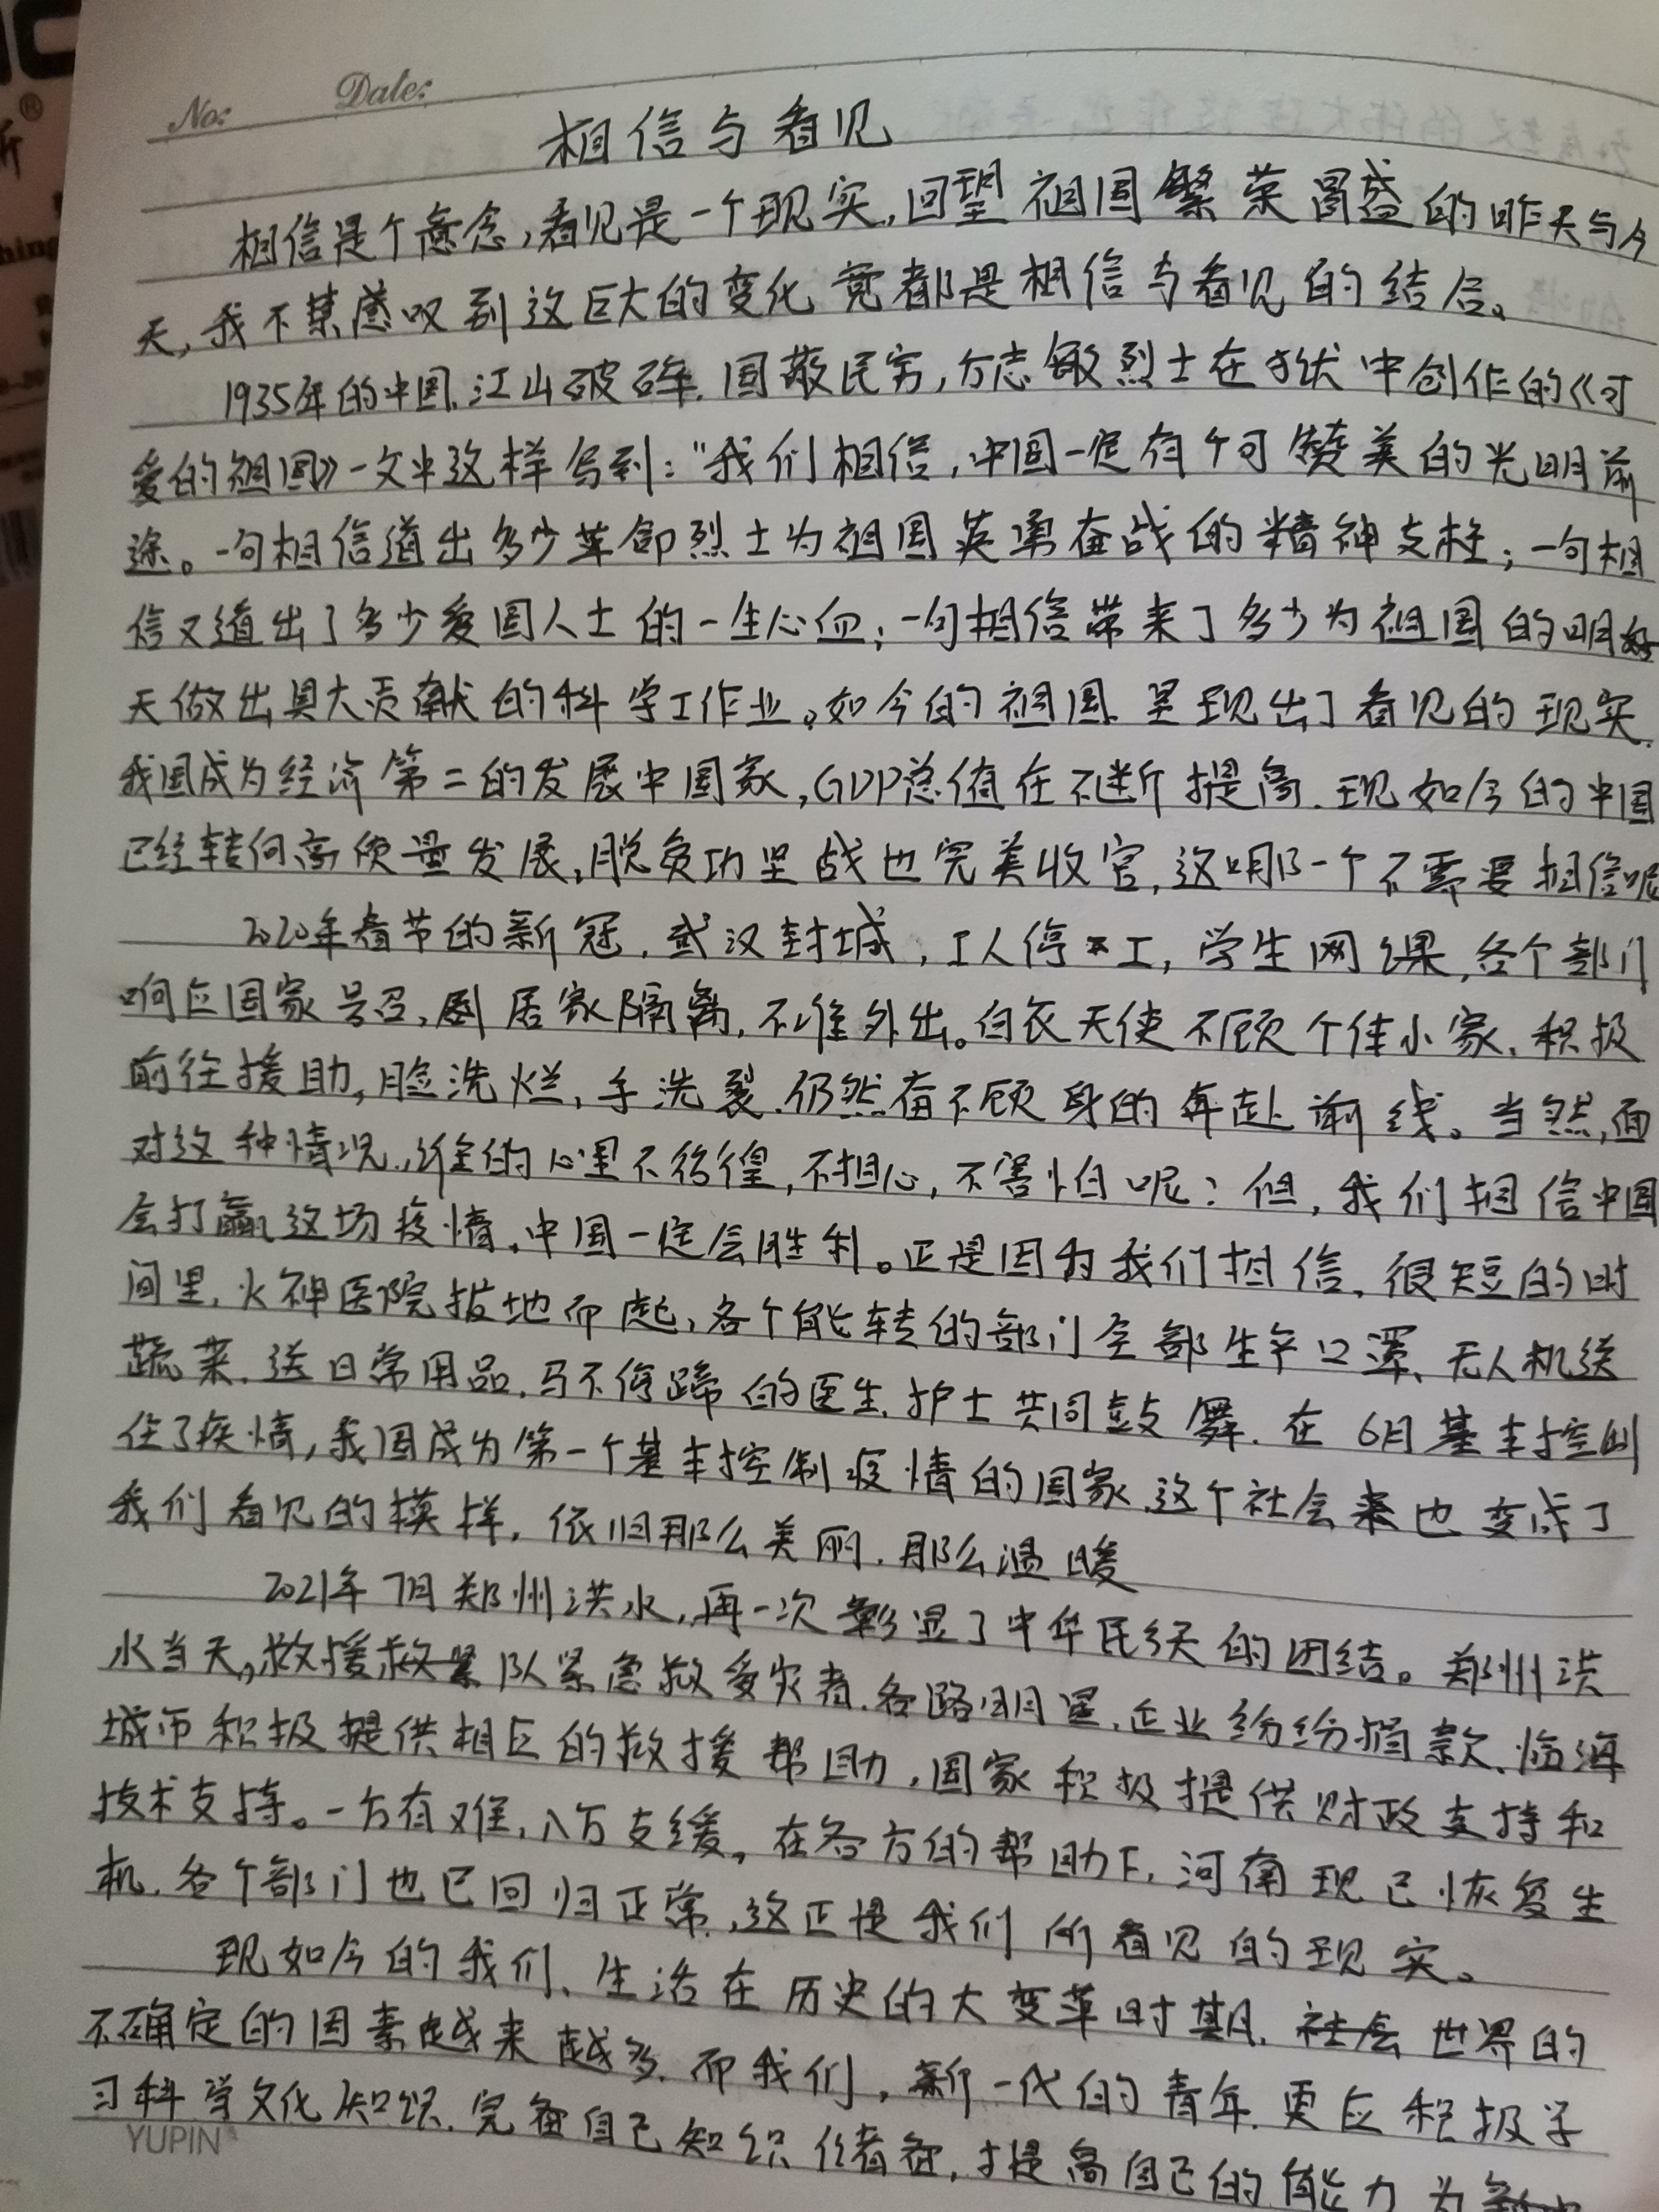 No:
Date:
相信与看见
相信是个意念,看见是一个现实,回望祖国繁荣昌盛的昨天与今
天,我不禁感叹到这巨大的变化竟都是相信与看见的结合。
1935年的中国,江山破碎,国敝民穷,方志敏烈士在狱中创作的《可
爱的祖国》一文中这样写到:"我们相信,中国一定有个可赞美的光明前
途。一句相信道出多少革命烈士为祖国英勇奋战的精神支柱;一句相
信又道出了多少爱国人士的一生心血;一句相信带来了多少为祖国的明
天做出具大贡献的科学工作业。如今的祖国呈现出了看见的现实.
我国成为经济第二的发展中国家,GDP总值在不断提高.现如今的中国
已经转向高质量发展,脱贫功坚战也完美收官,这哪一个不需要相信呢
2020年春节的新冠,武汉封城,工人停工,学生网课,各个部门
响应国家号召,居家隔离,不准外出。白衣天使不顾个体小家,积极
前往援助,脸洗烂,手洗裂.仍然奋不顾身的奔赴前线。当然,面
对这种情况,谁的心里不彷徨,不担心,不害怕呢?但,我们相信中国
会打赢这场疫情,中国一定会胜利。正是因为我们相信,很短的时
间里,火神医院拔地而起,各个能转的部门全部生产口罩、无人机送
蔬菜.送日常用品.马不停蹄的医生,护士共同鼓舞.在6月基本控制
住了疾情,我国成为第一个基本控制疫情的国家,这个社会也变成了
我们看见的模样,依旧那么美丽.那么温暖
2021年7月郑州洪水,再一次彰显了中华民族的团结。郑州洪
水当天,救援队紧急救受灾者.各路明星,企业纷纷捐款、临海
城市积极提供相应的救援帮助,国家积极提供财政支持和
技术支持。一方有难,八方支缓。在各方的帮助下,河南现已恢复生
机.各个部门也已回归正常,这正是我们所看见的现实。
现如今的我们、生活在历史的大变革时期.世界的
不确定的因素越来越多.而我们,新一代的青年.更应积极学
习科学文化知识.完善自己知识储备,提高自己的能力为
YUPIN